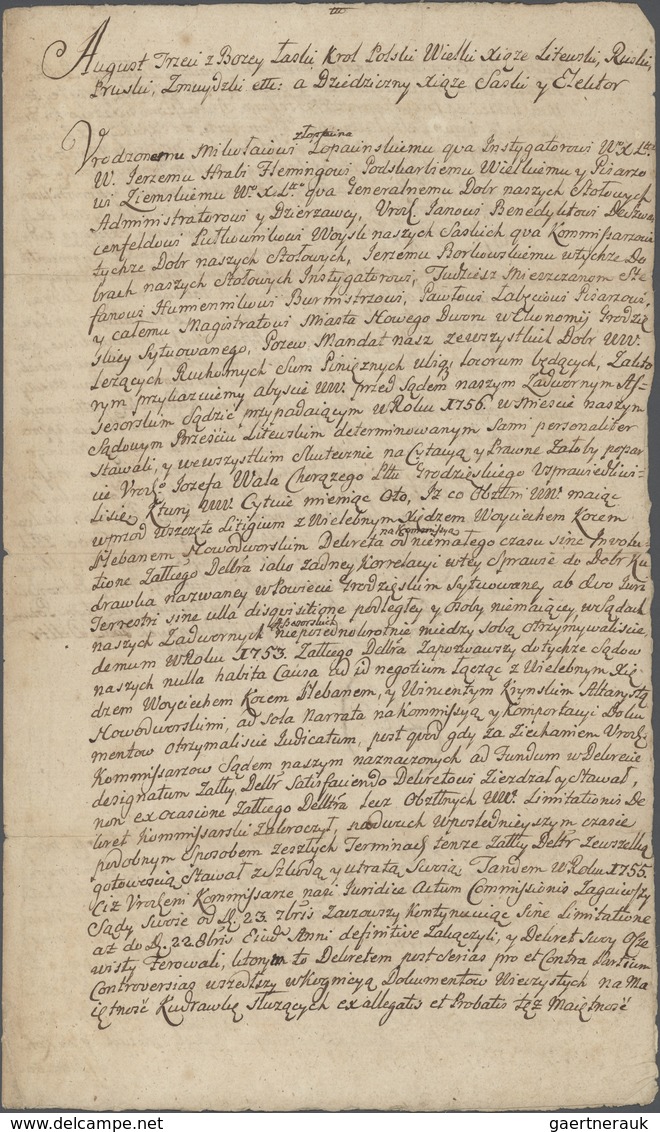 August Trzeci z Bozey Łaski, Krol Polski Wielki Xiąze Litewski, Ruski,
Pruski, Zmuydzki etc: a Dziedziczny Xiąze Saski y Elektor
Vrodzonemu Mikołaiowi Łopacinskiemu qva Instygatorowi
W. Jerzemu Hrabi Flemingowi Podskarbiemu Wielkiemu y Pisarzo
wi Ziemskiemu qva Generalnemu Dobr naszych Stołowych
Administratorowi y Dzierzawcy, Vrodz. Janowi Benedyktowi
Pułkownikowi Woysk naszych Saskich qva Kommissarzowi
tychze Dobr naszych Stołowych, Jerzemu Borkowskiemu wtychze Do
brach naszych Stołowych Instygatorowi, Tudziesz Mieszczanom Ste
fanowi Burmistrzowi, Pawłowi Łabęciowi Pisarzowi,
y całemu Magistratowi Miasta Nowego Dworu w Ekonomij Grodzie
Sytuowanego, Pozew Mandat nasz ze wszystkich Dobr WW.
Lezących Ruchomych Sum Pinięznych ubiq; locorum będących,
rym przykazuiemy abyscie WW. przed Sądem naszym Zadwornym As=
sesorskim Sądzie przypadaiącym w Roku 1756. wmiescie naszym
Sądowym Brzesciu Litewskim determinowanym Sami personaliter
Stawali, y we wszystkim Skutecznie na Cytacyą y Prawne Załoby popar
cie Vrodz. Jozefa Wala Chorązego Grodzięskiego Vsprawiedliwi=
lisię, Ktury WW. Cytuie mieniąc Oto, Iz co WW. maiąc
wprzod wszczęte Litigium z Wielebnym Xiędzem Woyciechem Kocem
Plebanem Nowodworskim Dekreta od niemałego czasu sine Involu
tione iako zadney Korrelacyi wtey Sprawie do Dobr Ku
drawka nazwaney w Powiecie Grodzięskim Sytuowaney ab dvo Juri
Terrestri sine ulla disquisitione podległey y Osoby niemaiącey w Sądach
naszych Zadwornych Assesorskich niepoiednokrotnie miedzy sobą otrzymywaliscie,
demum w Roku 1753. Zapozwawszy do tychze Sądow
naszych nulla habita Causa ad id negotium łącząc z Wielebnym Xię
dzem Woyciechem Kocem Plebanem, y Wincentym Kiynskim Altarystą
Nowodworskimi, ad sola Narrata na Kommissyą y Komportacyi Doku
mentow Otrzymaliscie Judicatum, post qvod gdy za Ziechaniem Vrodz.
Kommissarzow Sądem naszym naznaczonych ad Fundum w Dekrecie
designatum Satisfaciendo Dekretowi Ziezdzał y Stawał,
non ex ocasione lecz WW. Limitationis De
kret Kommissarski na dwuch w Poslednieyszym czasie
podobnym Sposobem zeszłych Terminach tenze zewszelką
gotowoscią Stawał z Szkodą y utratą Swoią; Tandem w Roku 1755
Ciz Vrodzeni Kommissarze nasi Juridice Actum Commissionis Zagaiwszy
Sądy Swoie od D. 23. 7bris Zacząwszy Kontynuuiąc Sine Limitatione
az do D. 22. 8bris Anni definitive Zakączyli, y Dekret Swoy Ocze
wisty Ferowali, ktorym to Dekretem post Serias pro et Contra Partium
Controversias wszedłszy w Kognicyą Dokumentow Wieczystych na Ma
iętność Kudrawkę Słuzących ex allegatis et Probatis tęz Maiętność
www.delcampe.net
gaertnerauk